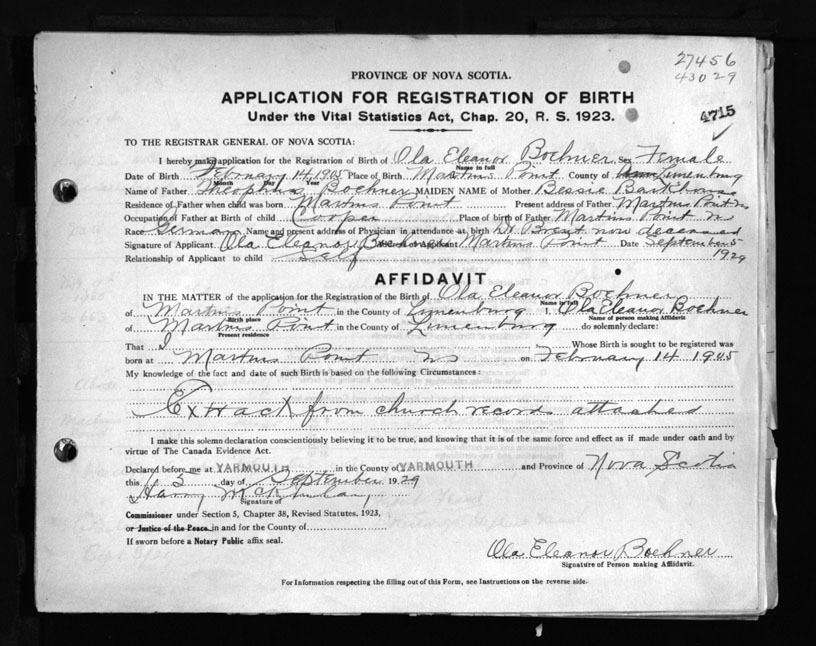 27456
43029
4715
PROVINCE OF NOVA SCOTIA.
APPLICATION FOR REGISTRATION OF BIRTH
Under the Vital Statistics Act, Chap. 20, R. S. 1923.
TO THE REGISTRAR GENERAL OF NOVA SCOTIA:
I hereby make application for the Registration of Birth of Ola Eleanor Boehner Sex Female
Name in full
Date of Birth February 14 1905 Place of Birth Martins Point County of Lunenburg
Month Day Year
Name of Father Boehner MAIDEN NAME of Mother Bessie Barkhouse
Residence of Father when child was born Martins Point Present address of Father Martins Point NS
Occupation of Father at Birth of child Cooper Place of birth of Father Martins Point NS
Race German Name and present address of Physician in attendance at birth Dr now deceased
Signature of Applicant Ola Eleanor Boehner Address of Applicant Martins Point Date September 5
Relationship of Applicant to child Self 1929
AFFIDAVIT
IN THE MATTER of the application for the Registration of the Birth of Ola Eleanor Boehner
Name in full
of Martins Point in the County of Lunenburg I, Ola Eleanor Boehner
Birth place Name of person making Affidavit
of Martins Point in the County of Lunenburg do solemnly declare:
Present residence
That I Whose Birth is sought to be registered was
born at Martins Point NS on February 14 1905
My knowledge of the fact and date of such Birth is based on the following Circumstances:
Extract from church records attached
I make this solemn declaration conscientiously believing it to be true, and knowing that it is of the same force and effect as if made under oath and by
virtue of The Canada Evidence Act.
Declared before me at YARMOUTH in the County of YARMOUTH and Province of Nova Scotia
this day of September 1929
Harry
Signature of
Commissioner under Section 5, Chapter 38, Revised Statutes, 1923,
or Justice of the Peace in and for the County of
If sworn before a Notary Public affix seal.
Ola Eleanor Boehner
Signature of Person making Affidavit.
For Information respecting the filling out of this Form, see Instructions on the reverse side.